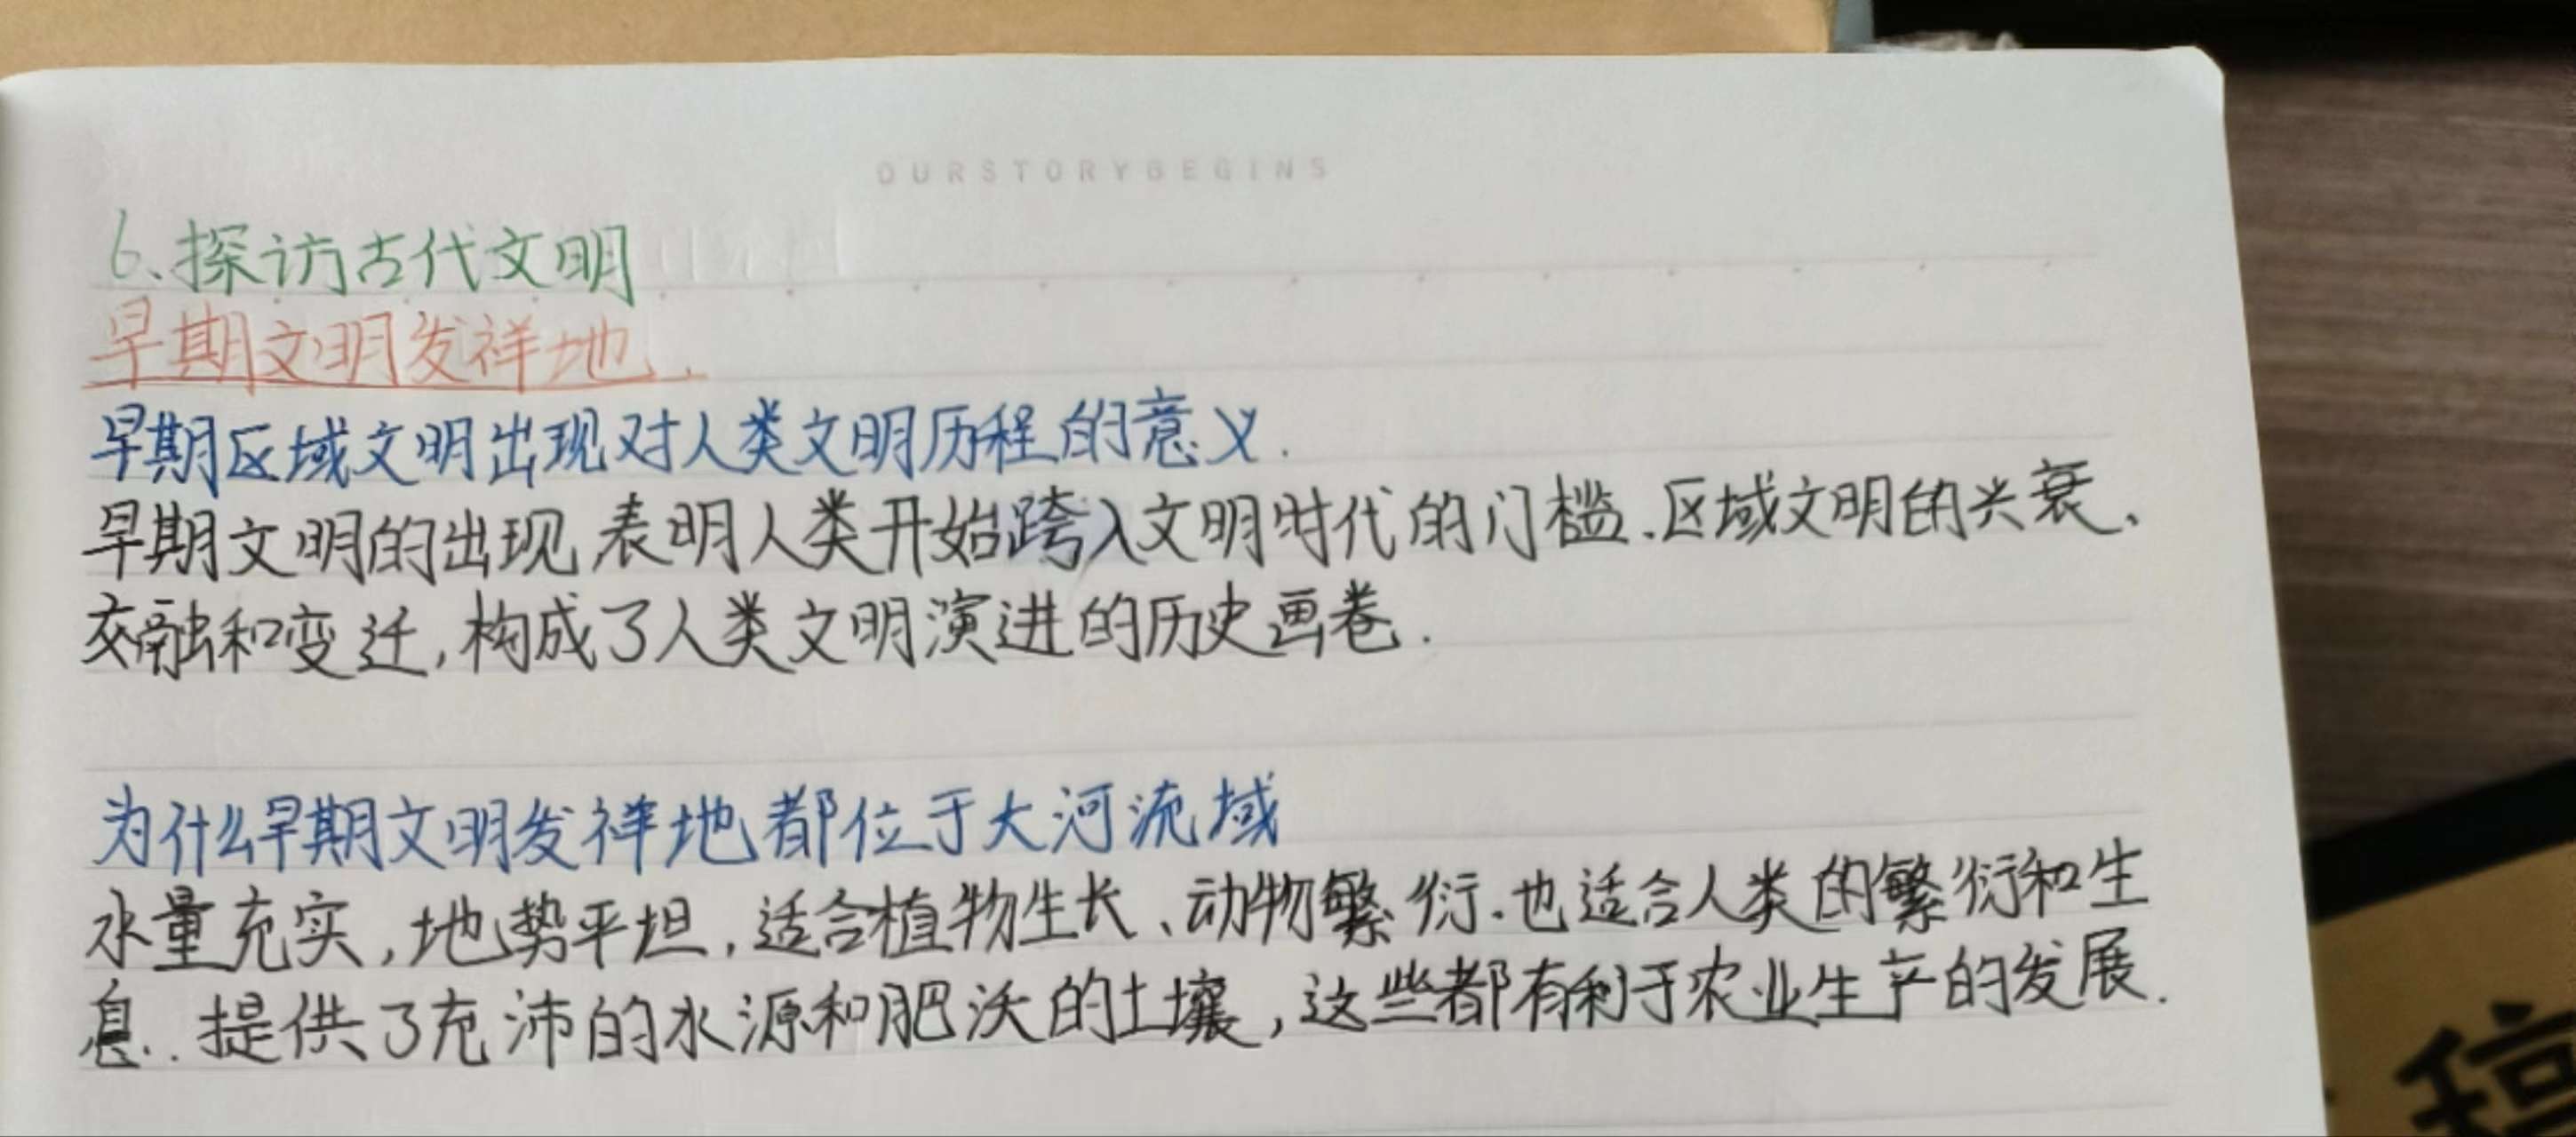 OURSTORYBEGINS
6、探访古代文明
早期文明发祥地.
早期区域文明出现对人类文明历程的意义.
早期文明的出现,表明人类开始跨入文明时代的门槛.区域文明的兴衰、
交融和变迁,构成了人类文明演进的历史画卷.
为什么早期文明发祥地都位于大河流域
水量充实,地势平坦,适合植物生长、动物繁衍.也适合人类的繁衍和生
息..提供了充沛的水源和肥沃的土壤,这些都有利于农业生产的发展.
稿